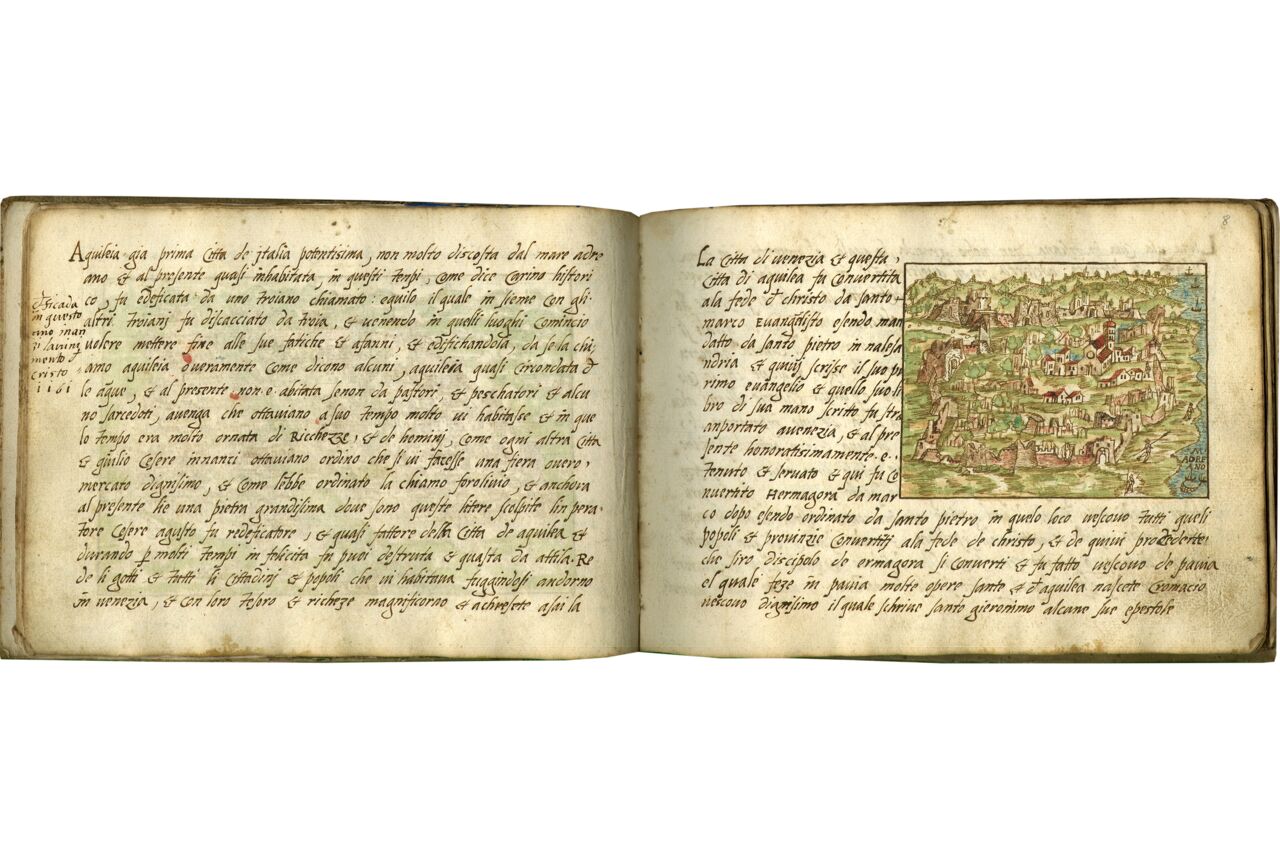 Aquileia gia prima Citta de jtalia potentisima, non molto discosta dal mare adre
ano & al presente quasi inhabitata, in questi tempi, Come dice Corino histori
co, fu edeficata da uno troiano chiamato: equilo il quale in sieme con gli
altri troianj fu discacciato da troia, & venendo in quelli luoghi Comincio
volere mettere fine alle sue fatiche & afanni, & edifichandola, da se la chi,
amo aquileia Overamente Come dicono alcuni, aquileia quasi Circondata d
le aque, & al presente non e abitata senon da pastori, & peschatori & alcu
no sarcedoti, avenga che ottaviano a suo tempo molto vi habitasse & in que
lo tempo era molto ornata di Ricchezze, & de hominj, Come ogni altra Citta
& giulio Cesere innanti ottaviano ordino che si vi facesse una fiera overo,
mercato dignisimo, & Come lebbe ordinato la chiamo forolivio, & anchora
al presente lie una pietra grandisima dove sono queste litere scolpite lin pera
tore Cesere agusto fu redeficatore, & quasi fattore della Citta de aquilea &
durando p molti tempi in felicita fu puoi destruta & guasta da attila Re
de li gotti & tutti li Cittadinj & popoli che vi habitava fuggindosi andorno
in venezia, & con loro tesoro & richeze magnificorno & achresete asai la
in questo
nno inan
mento d
cristo
1161
8
La Citta di venezia & questa,
Citta di aquilea fu Convertita
ala fede d christo da santo
marco Evangelisto esendo man
dato da santo pietro in nalesa
ndria & quivj scrisse il suo p
rimo evangelio & quello suo li
bro di sua mano scritto fu stra
anportato avenezia, & al pre
sente honoratisimamente e
tenuto & servato & qui fu Co
nvertito Hermagora da mar
co dopo esendo ordinato da santo pietro in quelo loco vescovo tutti queli
popoli & provinzie Convertitj ala fede de christo, & de quivi procedente
che siro discipolo de ermagora si Converti & fu fatto vescovo de pavia
el quale feze in pavia molte opere sante & d aquilea nascete Cromacio
vescovo dignisimo il quale schrive santo gieronimo alcune sue epestole
MARE
ADRE
ANO